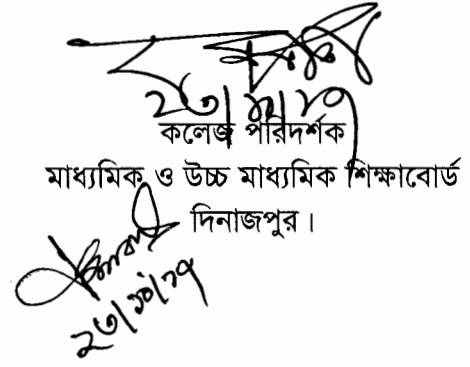 ২৩/১০/১৭
কলেজ পরিদর্শক
মাধ্যমিক ও উচ্চ মাধ্যমিক শিক্ষাবোর্ড
দিনাজপুর।
২৩/১০/১৭